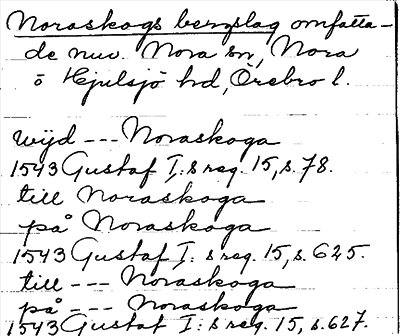 Noraskogs bergslag omfatta-
de nuv. Nora sn, Nora
o Hjulsjö hd, Örebro l.
wijd --- Noraskoga
1543 Gustaf I:s reg. 15, s. 78.
till Noraskoga
på Noraskoga
1543 Gustaf I:s reg. 15, s. 625.
till --- Noraskoga
på --- Noraskoga
1543 Gustaf I:s reg. 15, s. 627.